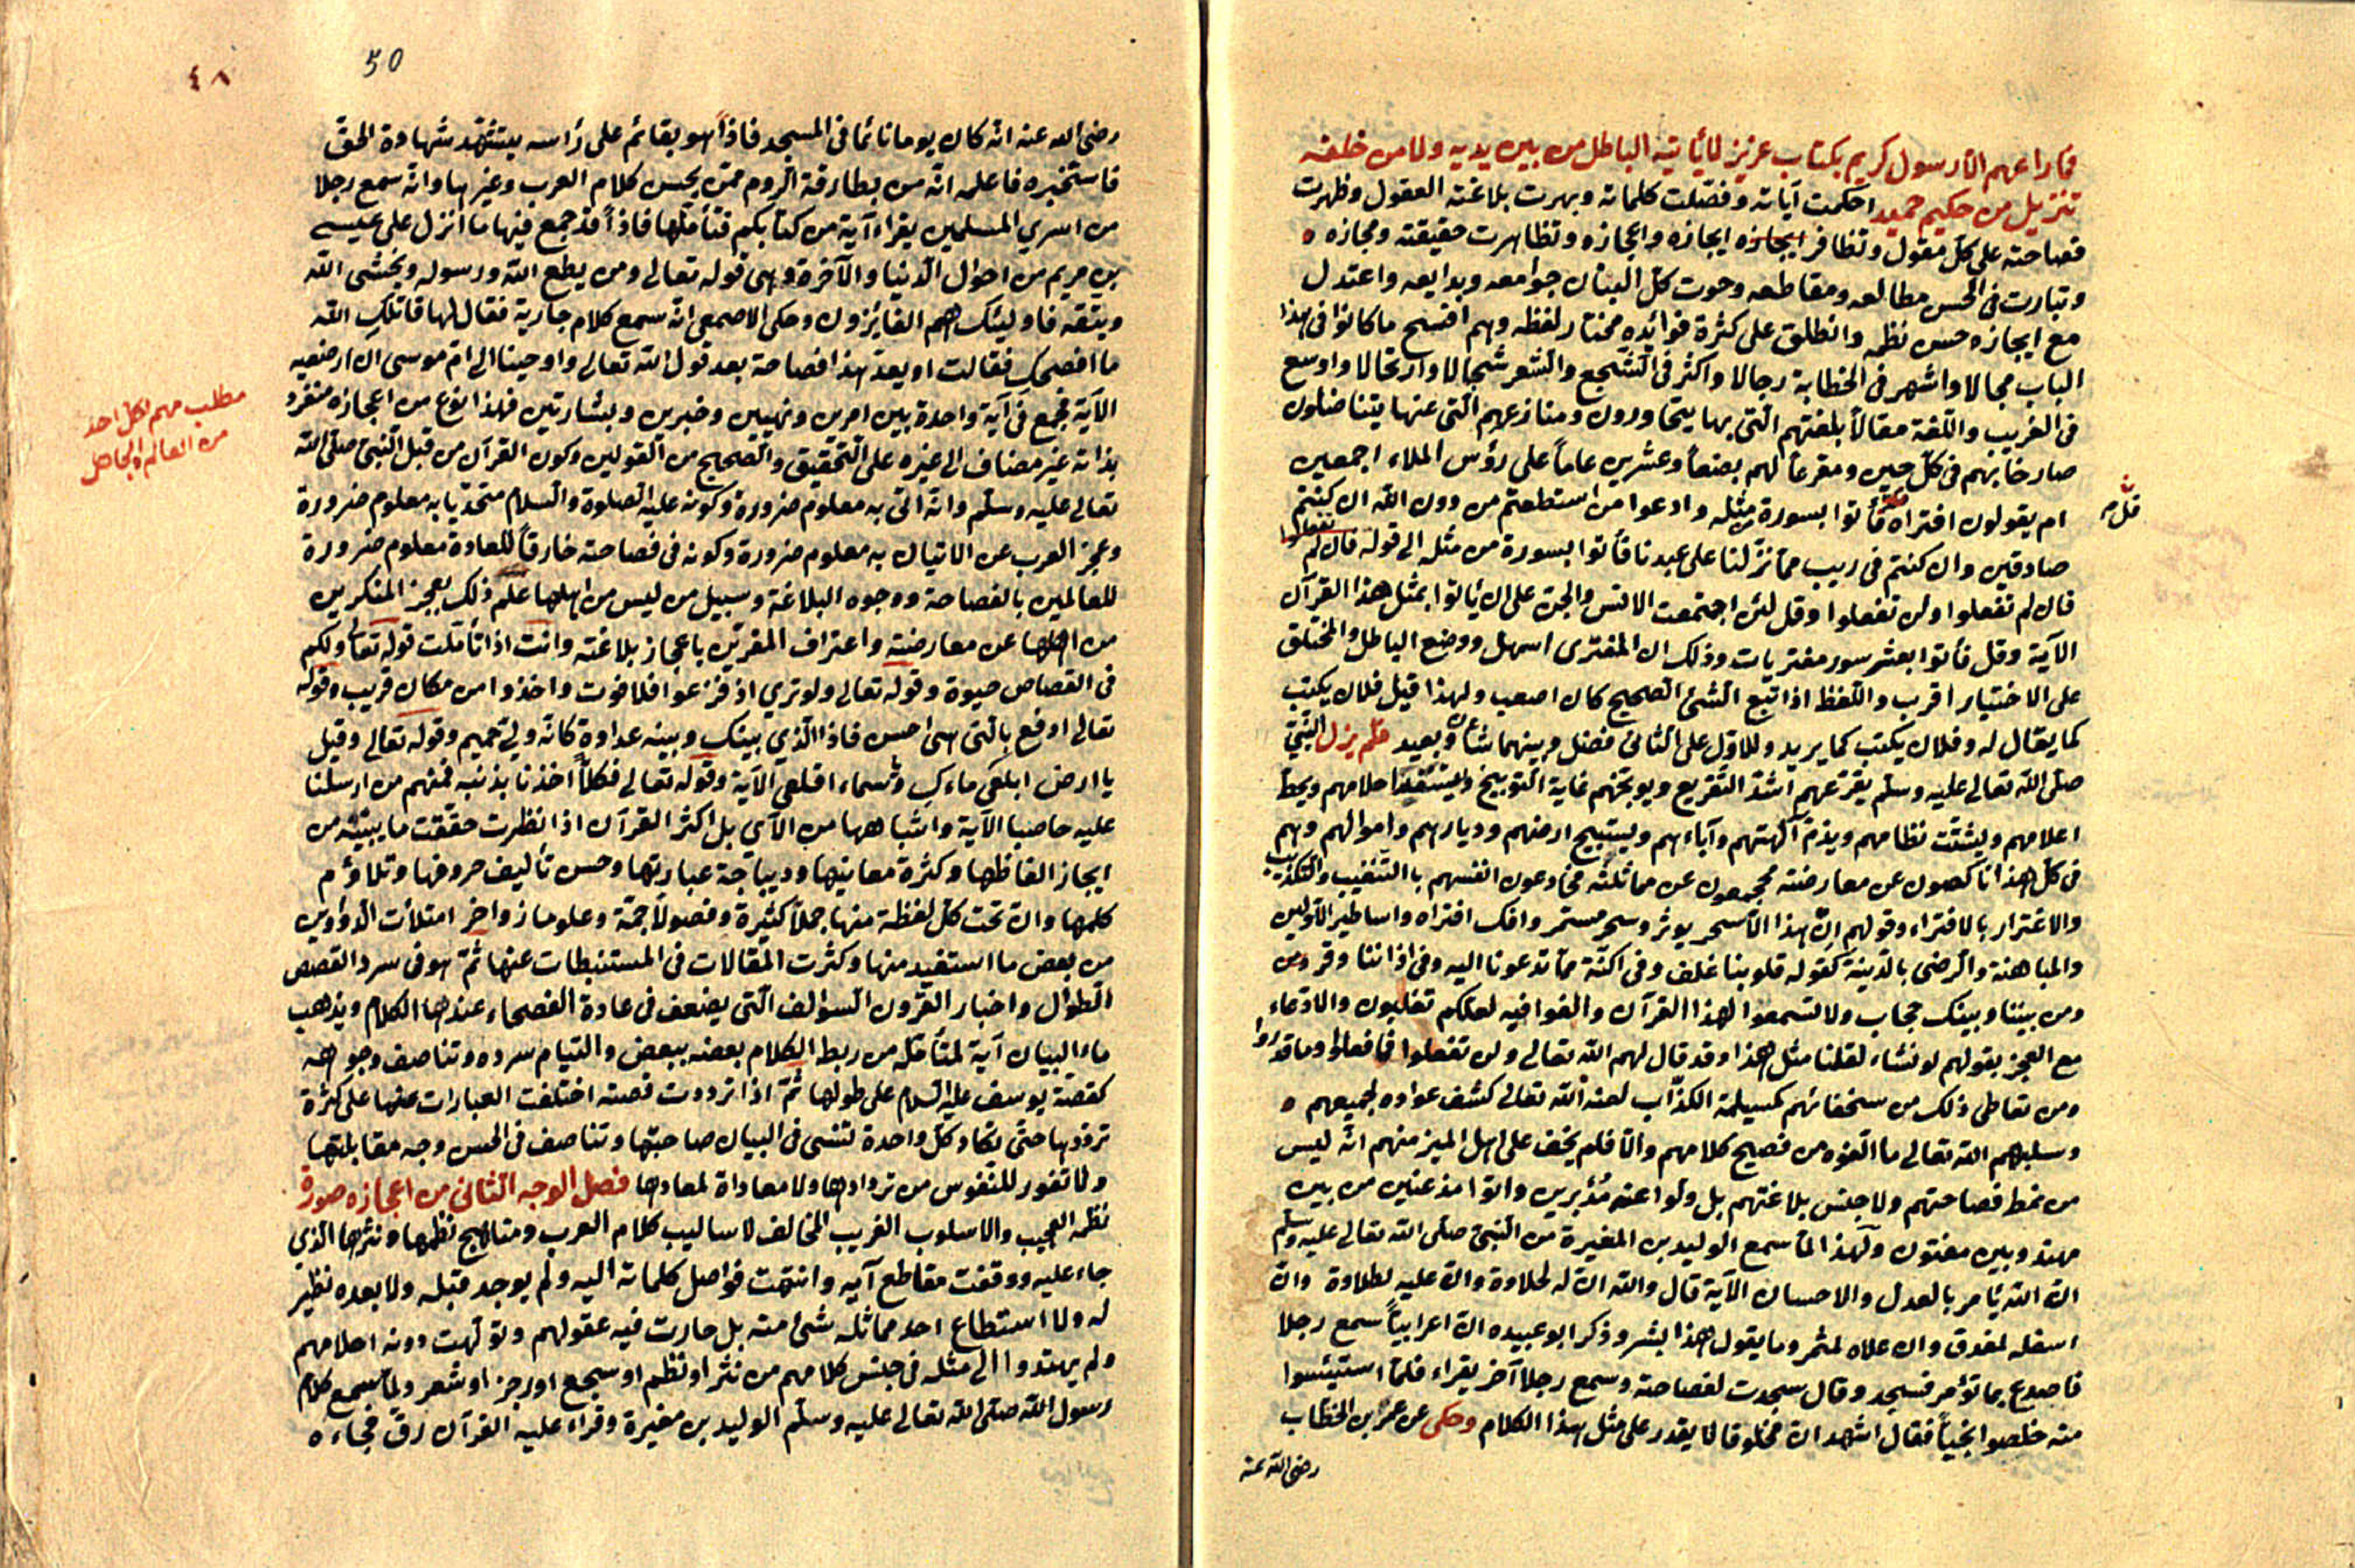 فما راعهم الا رسول كريم بكتاب عزيز لا يأتيه الباطل من بين يديه ولا من خلفه
تنزيل من حكيم حميد احكمت آياته وفصّلت كلماته وبهرت بلاغته العقول وظهرت
فصاحته على كلّ مقول وتظافر ايجازه واعجازه وتظاهرت حقيقته ومجازه
وتبارت فى الحسن مطالعه ومقاطعه وحوت كلّ البيان جوامعه وبدايعه واعتدل
مع ايجازه حسن نظمه وانطبق على كثرة فوائده مختار لفظه وهم افسح ما كانوا فى هذا
الباب مجالا واشهر فى الخطابة رجالا واكثر فى السّجع والشعر سجالا وارتجالا واوسع
فى الغريب واللّغة مقالاً بلغتهم الّتى بها يتحاورون ومنازعهم الّتى عنها يتناضلون
صارخا بهم فى كلّ حين ومقرعاً لهم بضعاً وعشرين عاماً على رؤس الملاء اجمعين
قل
ام يقولون افتراه فأتوا بسورة مثله وادعوا من استطعتم من دون الله ان كنتم
صادقين وان كنتم فى ريب ممّا نزّلنا على عبدنا فأتوا بسورة من مثله الى قوله فان لم تفعلوا
فان لم تفعلوا ولن تفعلوا وقل لئن اجتمعت الانس والجن على ان يأتوا بمثل هذا القرآن
الآية وقل فأتوا بعشر سور مفتريات وذلك ان المفترى اسهل ووضع الباطل والمختلق
على الاختيار اقرب واللّفظ اذا اتّبع الشئ الصحيح كان اصعب ولهذا قيل فلان يكتب
كما يقال له وفلان يكتب كما يريد وللاوّل على الثانى فضل وبينهما شأن بعيد فلم يزل النّبىّ
صلّى الله تعالى عليه وسلّم يقرّعهم اشدّ التّقريع ويوبّخهم غاية التّوبيخ ويسفّه احلامهم ويحطّ
اعلامهم ويشتّت نظامهم ويذمّ آلهتهم وآباءهم ويستبيح ارضهم وديارهم واموالهم وهم
فى كلّ هذا ناكصون عن معارضته محجمون عن مماثلته مخادعون انفسهم باالتّشغيب والتكذيب
والاغترار بالافتراء وقولهم ان هذا الّا سحر يوثر وسحر مستمر وافك افتراه واساطير الاوّلين
والمباهتة والرضى بالدّنيئة كقوله قلوبنا غلف وفى اكنّة ممّا تدعونا اليه وفى اذاننا وقر
ومن بيننا وبينك حجاب ولا تسمعوا لهذا القرآن والغوا فيه لعلكم تغلبون والادّعاء
مع العجز بقولهم لو نشاء لقلنا مثل هذا وقد قال لهم الله تعالى ولن تفعلوا فما فعلوا وما قدروا
ومن تعاطى ذلك من سخفائهم كمسيلمة الكذّاب لعنه الله تعالى كشف عواره لجميعهم
وسلبهم الله تعالى ما الفوه من فصيح كلامهم والّا فلم يخف على اهل الميز منهم انّه ليس
من نمط فصاحتهم ولا جنس بلاغتهم بل ولّوا عنه مُدْبرين واتوا مذعنين من بين
مهتد وبين مفتون ولهذا لمّا سمع الوليد بن المغيرة من النّبىّ صلّى الله تعالى عليه وسلّم
انّ الله يأمر بالعدل والاحسان الآية قال والله انّ له لحلاوة وانّ عليه لطلاوة وانّ
اسفله لمغدق وان اعلاه لمثمر وما يقول هذا بشر وذكر ابو عبيده انّ اعرابيّاً سمع رجلا
فاصدع بما تؤمر فسجد وقال سجدت لفصاحته وسمع رجلا آخر يقراء فلمّا استيئسوا
منه خلصوا نجيّاً فقال اشهد انّ مخلوقا لا يقدر على مثل هذا الكلام وحكى عن عمر بن الخطّاب
رضى الله عنه
50
٤٨
رضى الله عنه انّه كان يوما نائما فى المسجد فاذاً هو بقائم على رأسه يتشهّد شهادة الحق
فاستخبره فاعلمه انّه من بطارقة الرّوم ممّن يحسن كلام العرب وغيرها وانّه سمع رجلا
من اسرى المسلمين يقراء آية من كتابكم فتأمّلها فاذاً قد جمع فيها ما انزل على عيسى
بن مريم من احوال الدّنيا والآخرة وهى قوله تعالى ومن يطع الله ورسوله ويخشى الله
ويتّقه فاوليئك هم الفائزون وحكى الاصمعى انّه سمع كلام جارية فقال لها قاتلك الله
ما افصحك فقالت او يعدّ هذا فصاحة بعد قول الله تعالى واوحينا الى امّ موسى ان ارضعيه
الآية فجمع فى آية واحدة بين امرين ونهيين وخبرين وبشارتين فهذا نوع من اعجازه منفرد
مطلب مهم لكل احد
من العالم والجاهل
بذاته غير مضاف الى غيره على التّحقيق والصحيح من القولين وكون القرآن من قبل النّبىّ صلّى الله
تعالى عليه وسلّم وانّه اتى به معلوم ضرورة وكونه عليه الصلوة والسلام متحدّيا به معلوم ضرورة
وعجز العرب عن الاتيان به معلوم ضرورة وكونه فى فصاحته خارقاً للعادة معلوم ضرورة
للعالمين بالفصاحة ووجوه البلاغة وسبيل من ليس من اهلها علم ذلك بعجز المنكرين
من اهلها عن معارضته واعتراف المقرّين باعجاز بلاغته وانت اذا تأمّلت قوله تعالى ولكم
فى القصاص حيوة وقوله تعالى ولو ترى اذ فزعوا فلا فوت واخذوا من مكان قريب وقوله
تعالى ادفع بالّتى هى احسن فاذا الّذى بينك وبينه عداوة كانّه ولىّ حميم وقوله تعالى وقيل
يا ارض ابلعى ماءك ويسماء اقلعى الآية وقوله تعالى فكلّاً اخذنا بذنبه فمنهم من ارسلنا
عليه حاصبا الآية واشباهها من الآى بل اكثر القرآن اذا نظرت حققت ما بيّنته من
ايجاز الفاظها وكثرة معانيها وديباجة عبارتها وحسن تأليف حروفها وتلاؤم
كلمها وانّ تحت كلّ لفظة منها جملاً كثيرة وفصولاً جمّة وعلوما زواخر امتلأت الدواوين
من بعض ما استفيد منها وكثرت المقالات فى المستنبطات عنها ثمّ هو فى سرد القصص
الطوال واخبار القرون السوالف الّتى يضعف فى عادة الفصحاء عندها الكلام ويذهب
ماء البيان آية لمتأمّله من ربط الكلام بعضه ببعض والتيام سرده وتناصف وجوهه
كقصّة يوسف عليه السلام على طولها ثمّ اذا تردّدت قصصه اختلفت العبارات عنها على كثرة
تردّدها حتّى تكاد كلّ واحدة تنسى فى البيان صاحبتها وتناصف فى الحسن وجه مقابلتها
ولا نفور للنّفوس من تردادها ولا معاداة لمعادها فصل الوجه الثّانى من اعجازه صورة
نظمه العجيب والاسلوب الغريب المخالف لاساليب كلام العرب ومناهج نظمها ونثرها الّذى
جاء عليه ووقفت مقاطع آيه وانتهت فواصل كلماته اليه ولم يوجد قبله ولا بعده نظير
له ولا استطاع احد مماثلة شئ منه بل حارت فيه عقولهم وتولّهت دونه احلامهم
ولم يهتدوا الى مثله فى جنس كلامهم من نثر او نظم او سجع او رجز او شعر ولمّا سمع كلام
رسول الله صلّى الله تعالى عليه وسلّم الوليد بن مغيرة وقراء عليه القرآن رقّ فجاءه